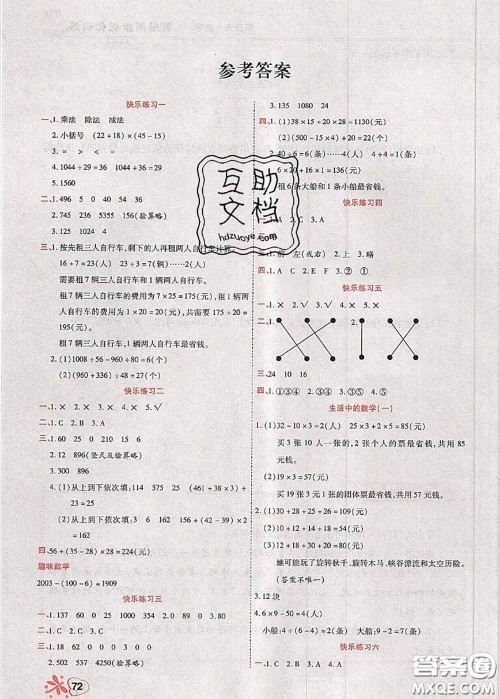 参考答案
快乐练习一
一、1. 乘法 除法 减法
2. 小括号 (22+18)×(45-15)
3. = > < =
4. 1044÷29=36 1044÷36=29
5. 1560
二、2. 745 235 1155(验算略)
3. 624 5396 115
三、1. 按先租三人自行车,剩下的人再租两人自行车计算
16+7=23(人) 23÷3=7(辆)
需要租7辆三人自行车和1辆两人自行车。
租7辆三人自行车的费用为7×25=175(元),租1辆两
人自行车的费用为1×20=20(元),共175+20=195(元)。
租7辆三人自行车和1辆两人自行车最省钱。
2. (1)1008÷56-960÷80=6(元)
(2)(960+336)÷48=27(元)
快乐练习二
一、1. × 2. × 3. √ 4. ×
二、1. C 2. B 3. A
三、1. 60 25 0 210 35 160
2. 12 896(竖式及验算略)
3. 150 0 0 0 0
4. (1)从上到下依次填:114 575 25 (46+38×3)+
32=25
(2)从上到下依次填:3 6 162 156÷(42-39)+62
=114
四、56+(35-28)×28=224(元)
趣味数学
2003-(100-6)=1909
快乐练习三
一、1. 137 60 0 25 1000 354 2. 0 89 0 3. 380
二、1. B 2. A 3. A 4. B
三、1. 18 50 80 35 0 1
2. 502 537 4530(验算略)
72
3. 135 1080 24
四、1. (1)38×15+20×28=1130(元)
6×20+16×1=136(元)
租6条大船和1条小船最省钱。
快乐练习四
2. 上 3. 略
二、1. A C E F 3. ② ①
快乐练习五
一、1. × 2. √ 3. √
二、1.
三、24 10 16
四、1. ①③④ 2. ①③④ 3. ①②④
生活中的数学(一)
1. (1)32-10×3=2(人) 25×3+2×5=85(元)
买3张10人一张的,2张个人的票最省钱,共用85
元钱。
买19张3元一张的团体票最省钱,共用57元钱。
2. (1)30+28+25+15=98(元)
(2)10+12+14+14=50(元)
她可能玩了旋转秋千、旋转木马、峡谷漂流和太空历险。
(答案不唯一)
3. 12块
4. 6×9-50=4(人)
小船:4÷(6-4)=2(条) 大船:9-2=7(条)
快乐练习六
互助
文档
hdzuoye.com
答案圈
MXQE.COM